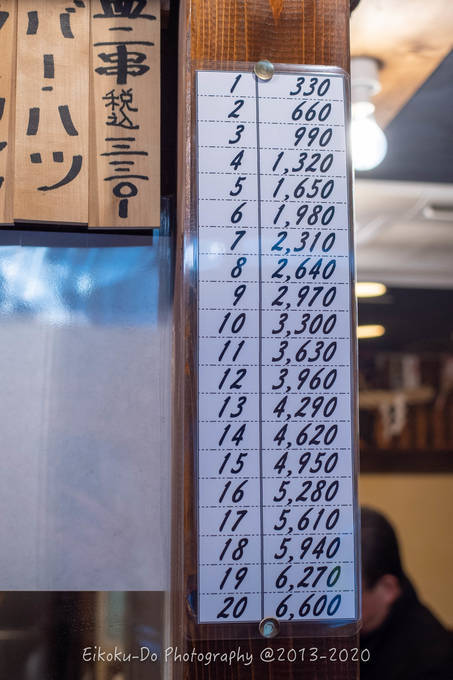 皿二串税込三三〇ー
バー・ハツ
1 330
2 660
3 990
4 1,320
5 1,650
6 1,980
7 2,310
8 2,640
9 2,970
10 3,300
11 3,630
12 3,960
13 4,290
14 4,620
15 4,950
16 5,280
17 5,610
18 5,940
19 6,270
20 6,600
Eikoku-Do Photography @2013-2020